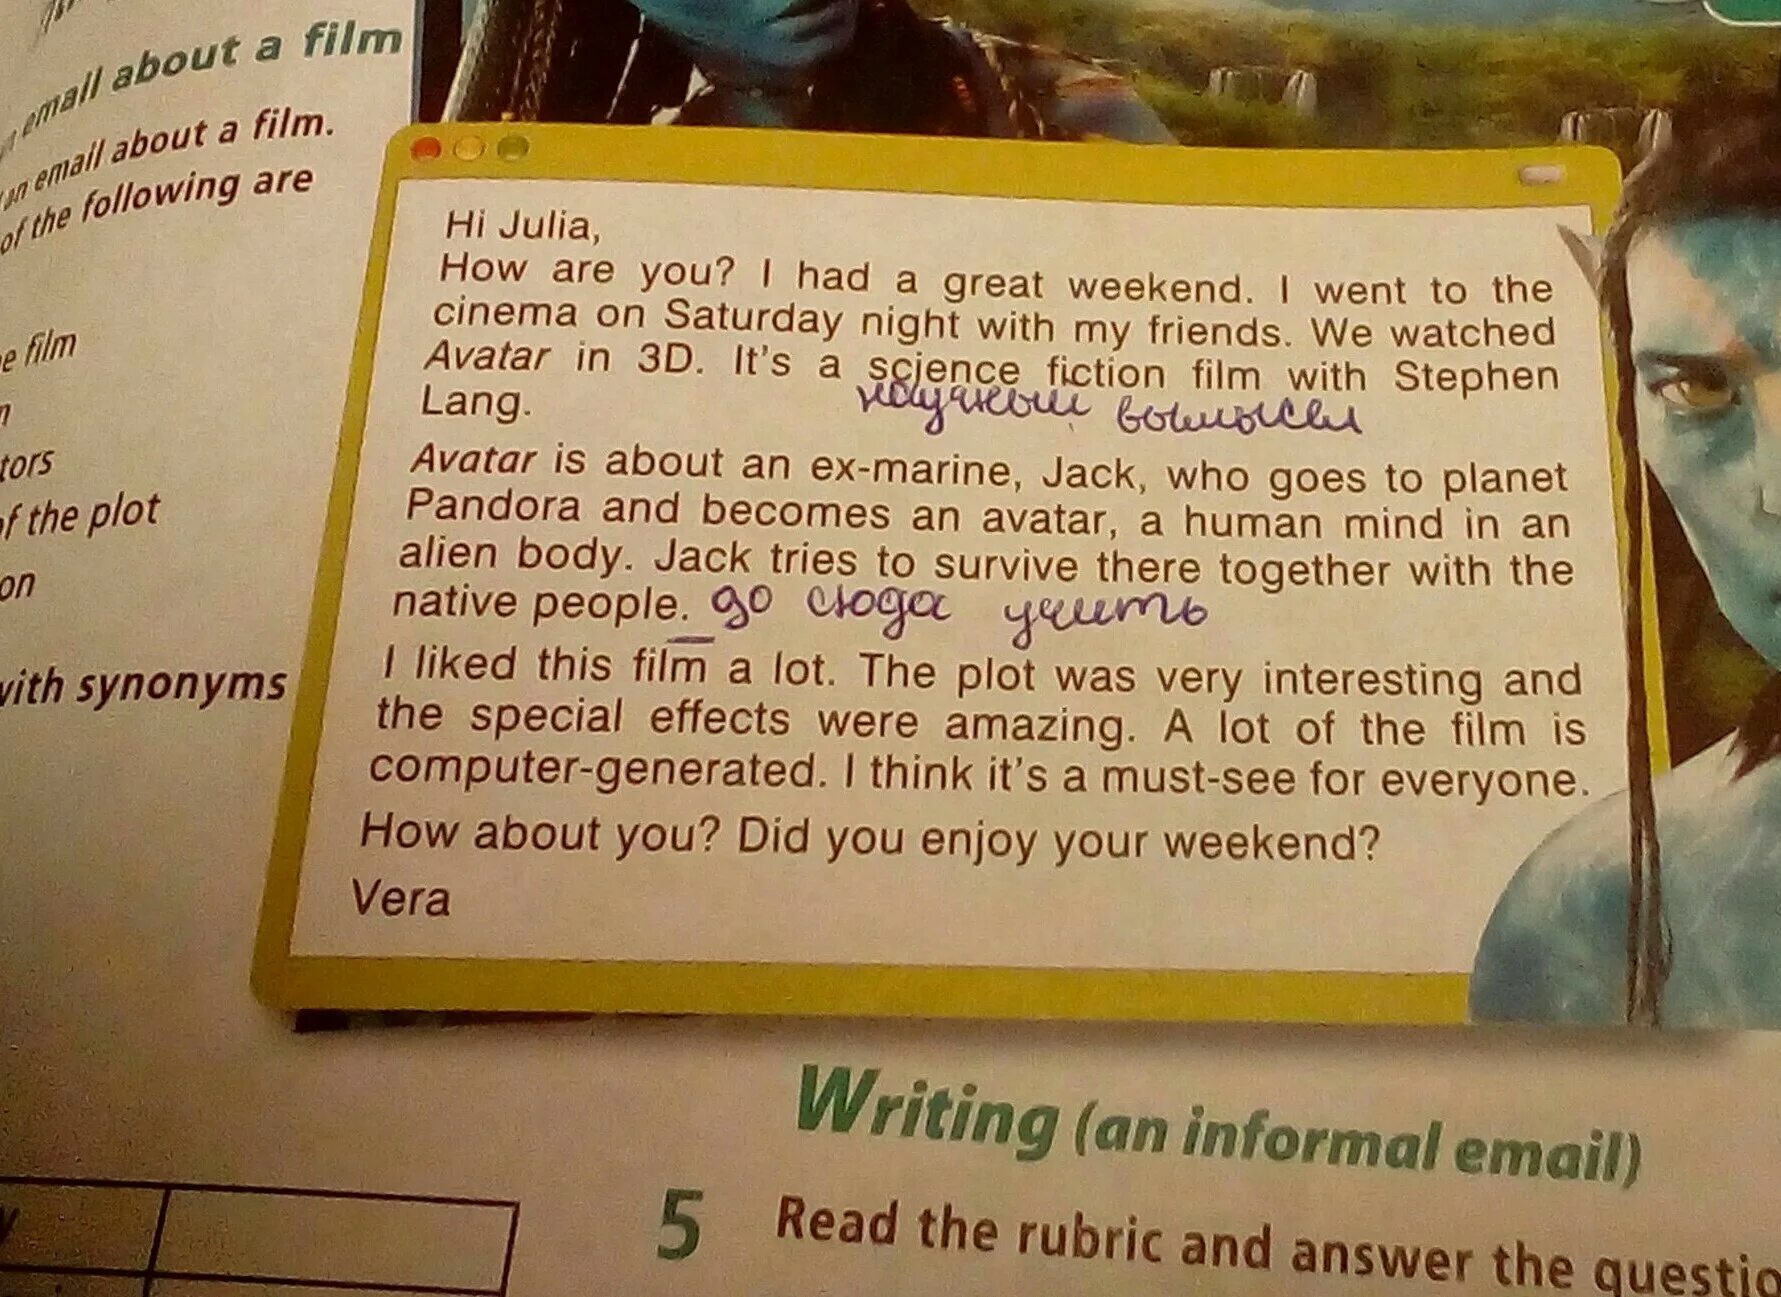 email about a film
an email about a film.
of the following are
film
of the plot
on
with synonyms
Hi Julia,
How are you? I had a great weekend. I went to the
cinema on Saturday night with my friends. We watched
Avatar in 3D. It's a science fiction film with Stephen
Lang.
научный вымысел
Avatar is about an ex-marine, Jack, who goes to planet
Pandora and becomes an avatar, a human mind in an
alien body. Jack tries to survive there together with the
native people. до сюда учить
I liked this film a lot. The plot was very interesting and
the special effects were amazing. A lot of the film is
computer-generated. I think it's a must-see for everyone.
How about you? Did you enjoy your weekend?
Vera
Writing (an informal email)
5 Read the rubric and answer the